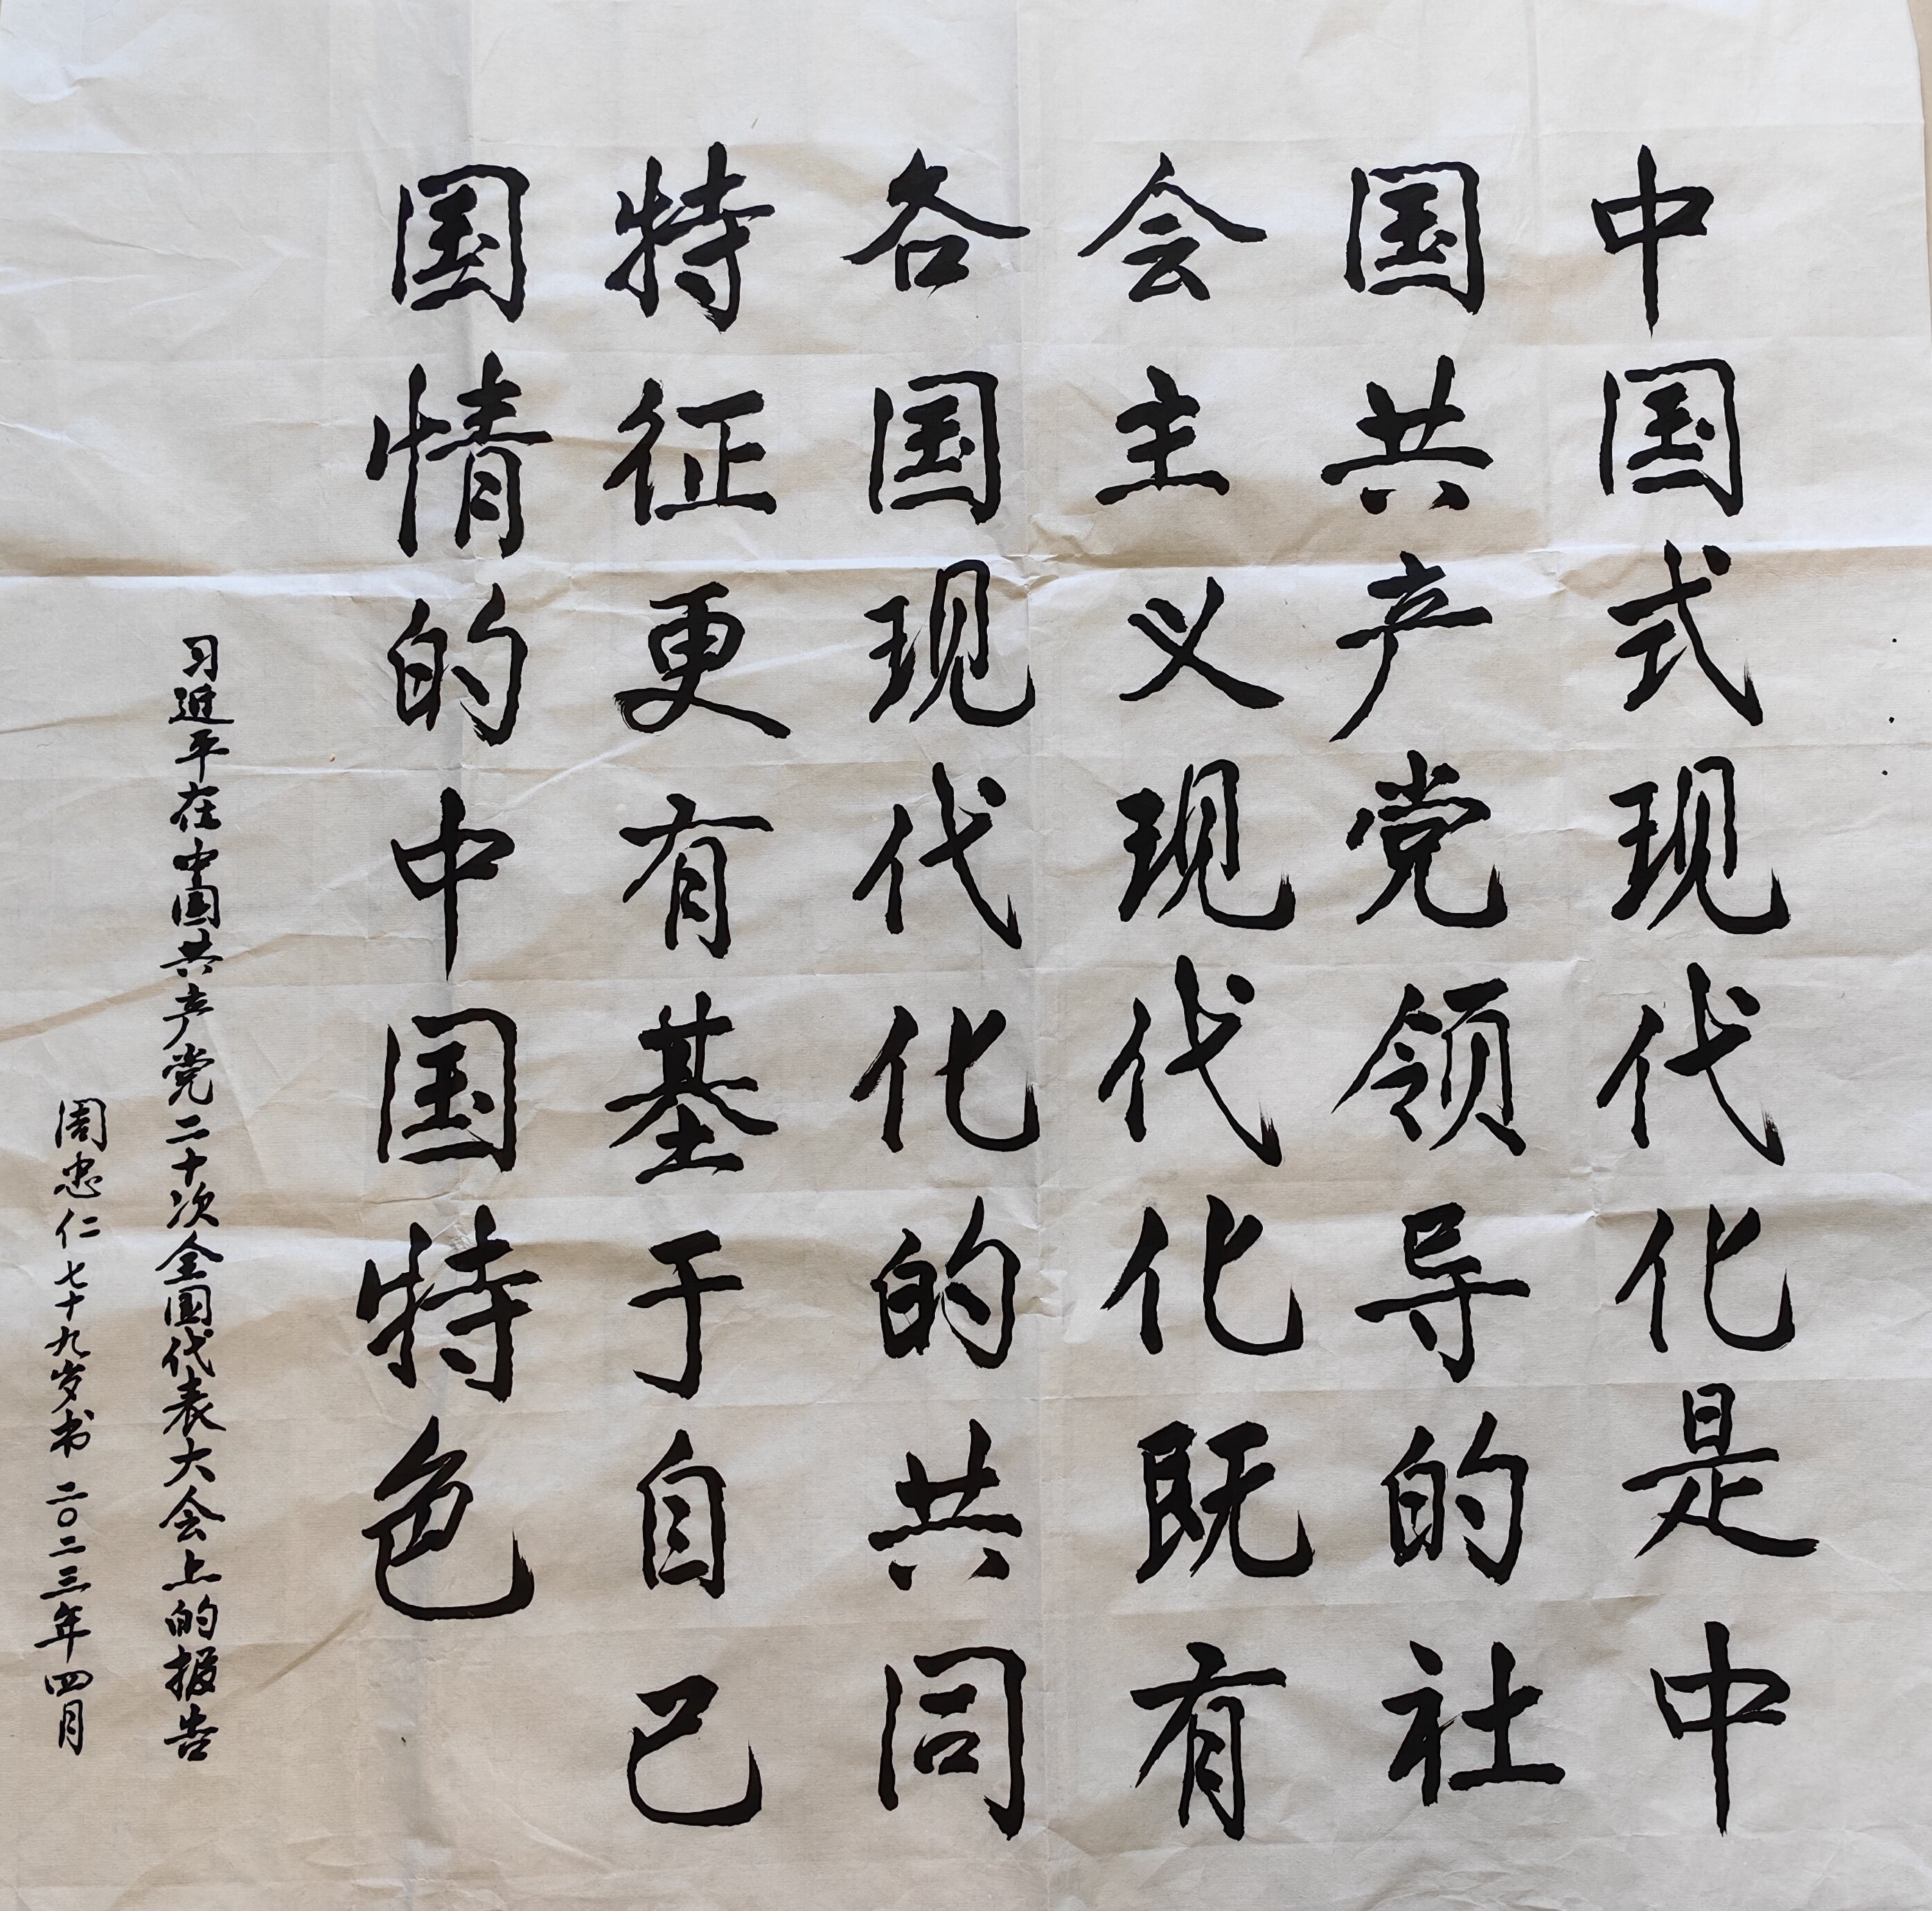 中国式现代化是中
国共产党领导的社
会主义现代化既有
各国现代化的共同
特征更有基于自己
国情的中国特色
习近平在中国共产党二十次全国代表大会上的报告
周忠仁七十九岁书二〇二三年四月